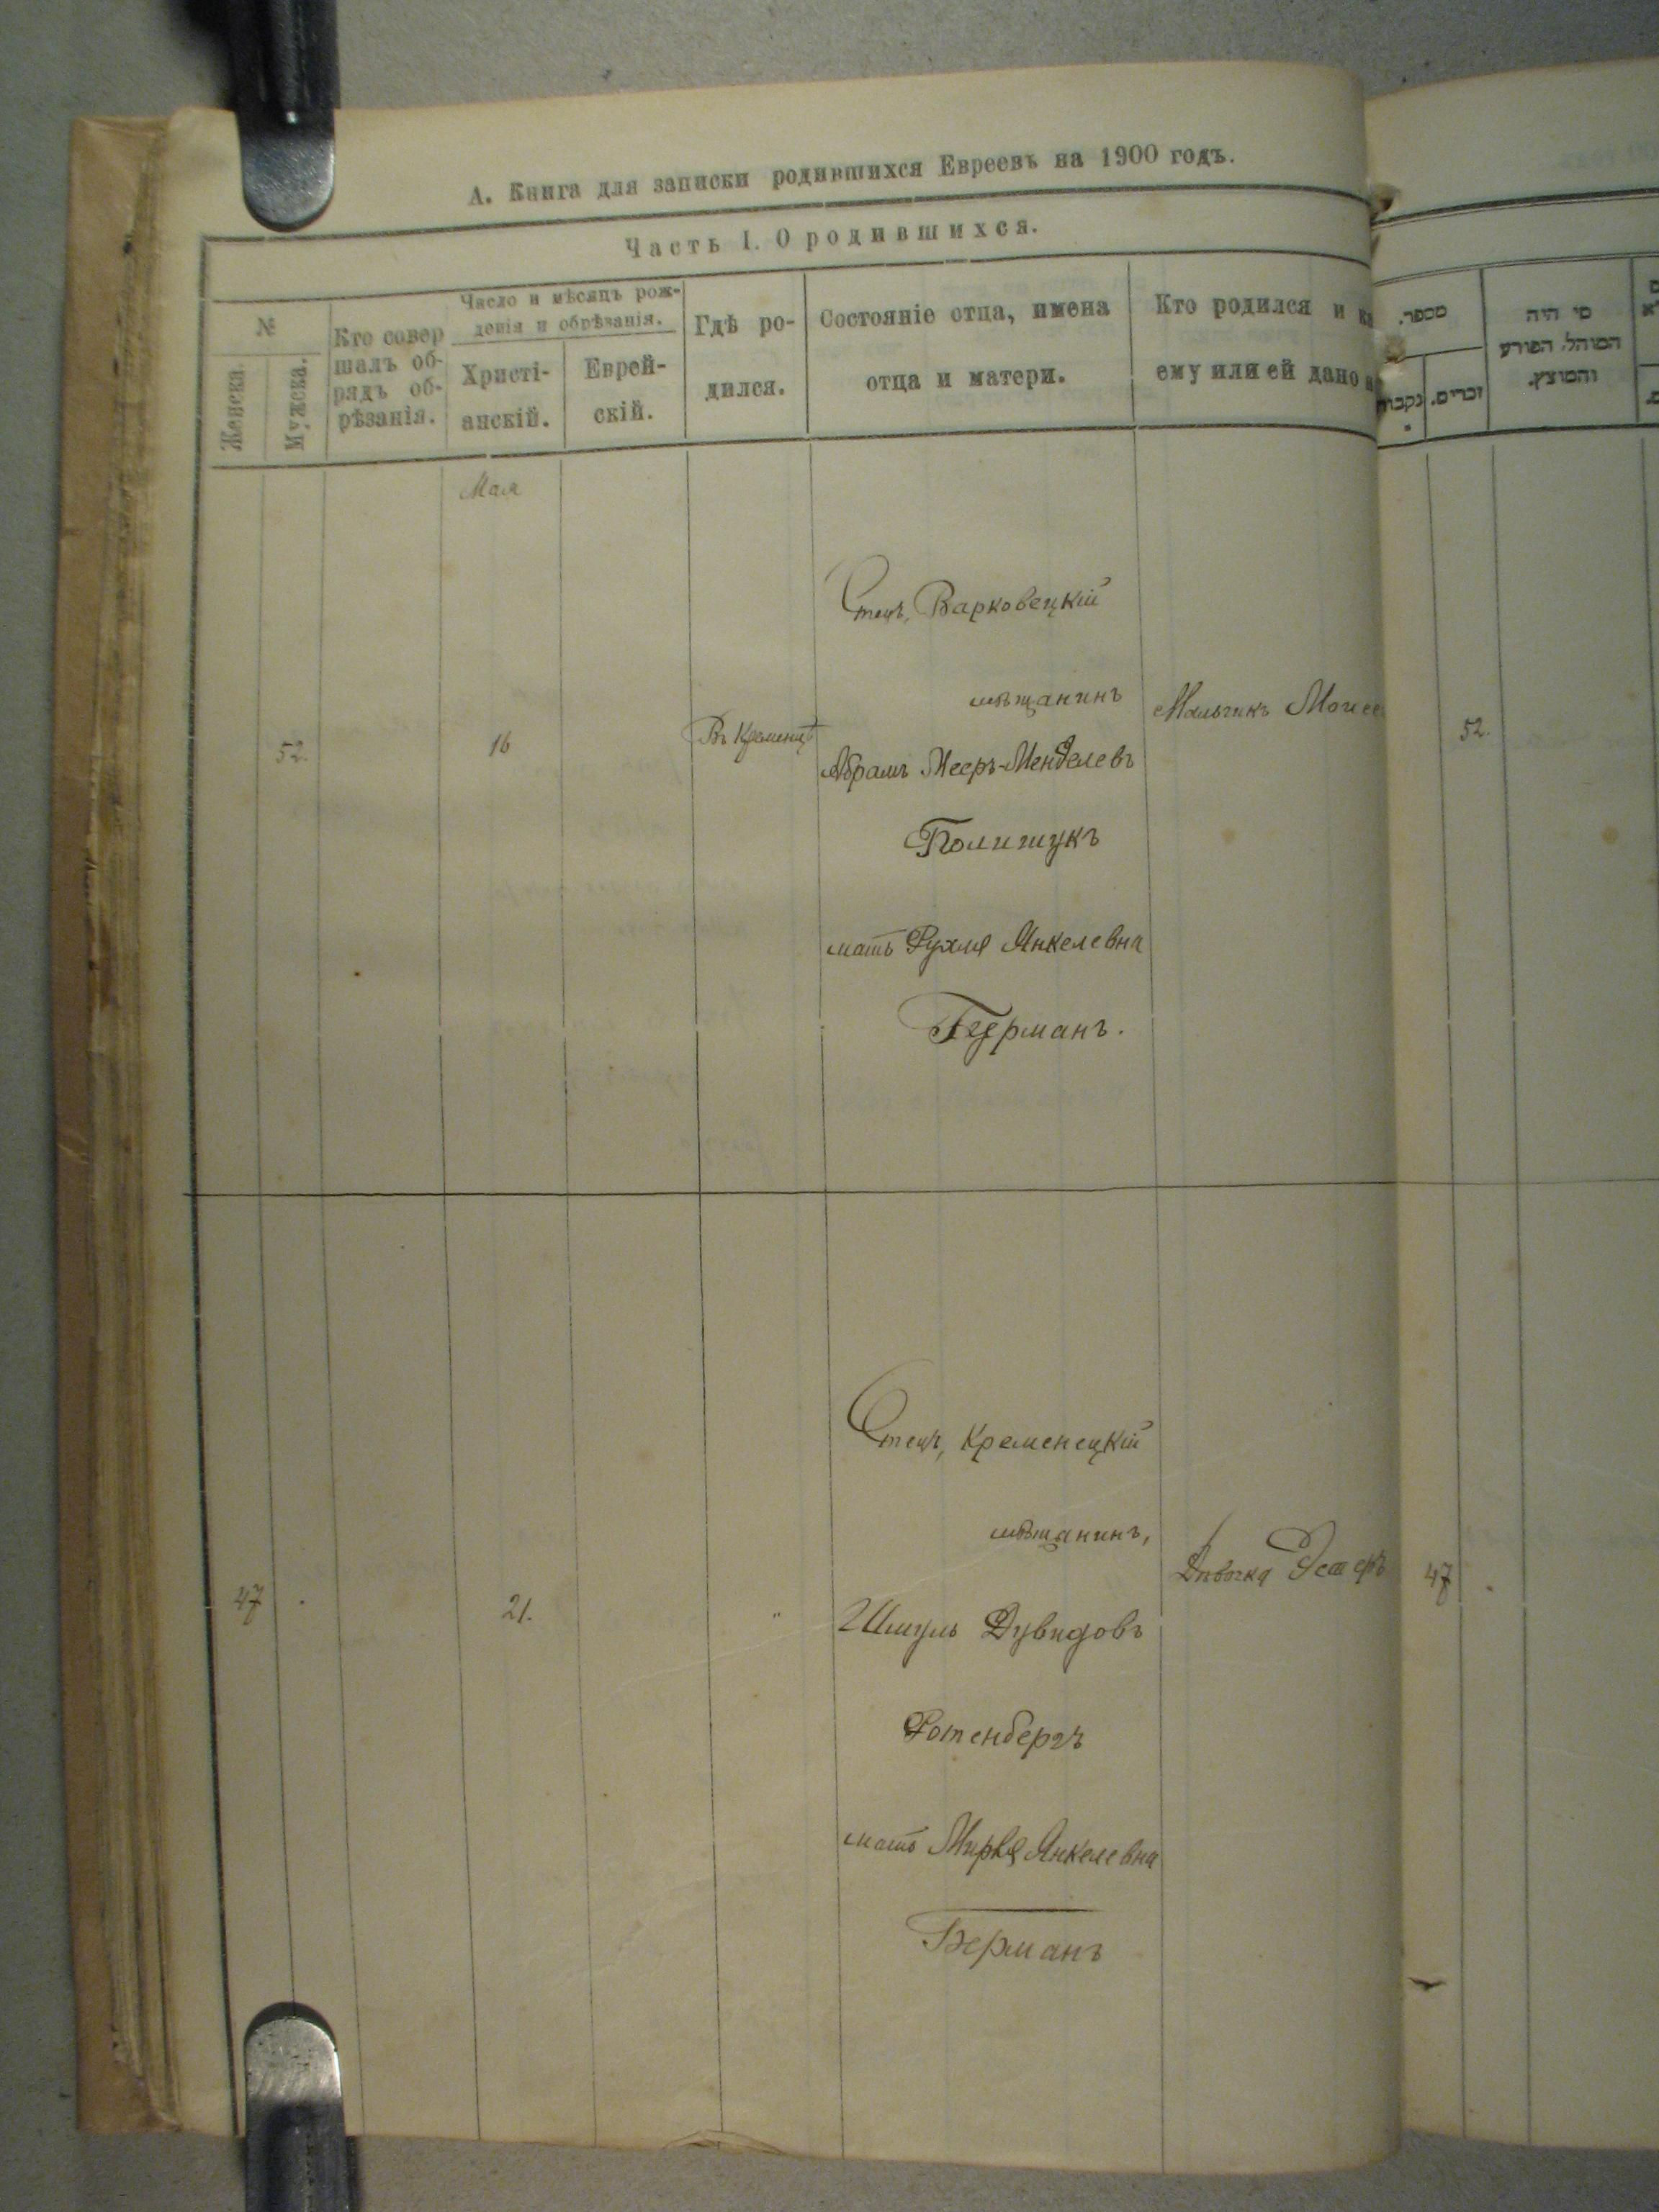 А. Книга для записки родившихся Евреевъ на 1900 годъ.
Часть I. О родившихся.
№
Женска.
Мужска.
Кто совер
шалъ об-
рядъ об-
рѣзанія.
Число и мѣсяцъ рож-
денія и обрѣзанія.
Христі-
анскій.
Еврей-
скій.
Гдѣ ро-
дился.
Состояніе отца, имена
отца и матери.
Кто родился и
ему или ей дано
מספר.
נקבות
זכרים.
מי היה
המוהל הפורע
והמוצץ.
Мая
52.
16
Въ Кременцѣ
Отецъ, Варковецкій
мѣщанинъ
Абрамъ Мееръ-Менделевъ
Полищукъ
мать Рухля Янкелевна
Германъ.
Мальчикъ Моисе
52.
47
21.
"
Отецъ, Кременецкій
мѣщанинъ,
Шмуль Дувидовъ
Ротенбергъ
мать Мирля Янкелевна
Берманъ
Дѣвочка Эстеръ
47